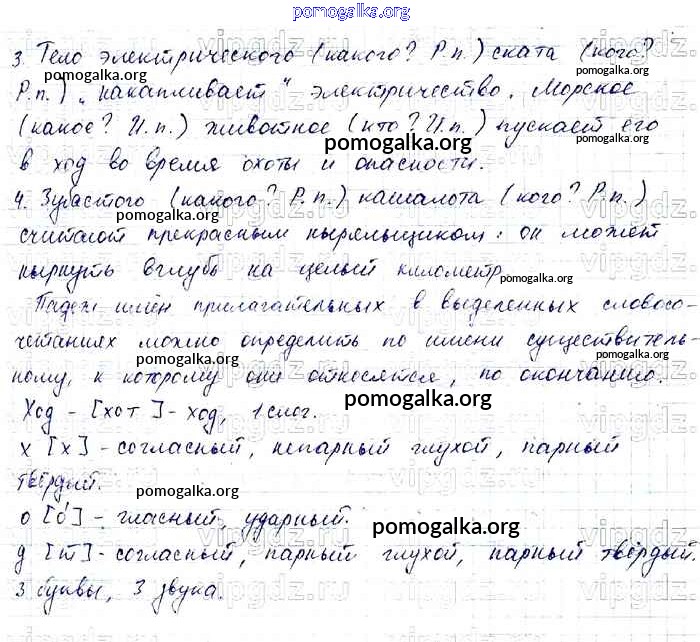 pomogalka.org
3. Тело электрического (какого? Р.п.) ската (кого?
Р.п.) „накапливает" электричество. Морское
(какое? И.п.) животное (кто? И.п.) пускает его
в ход во время охоты и опасности.
4. Зубастого (какого? Р.п.) кашалота (кого? Р.п.)
считают прекрасным ныряльщиком: он может
нырнуть вглубь на целый километр
Падеж имён прилагательных в выделенных словосо-
четаниях можно определить по имени существитель-
ному, к которому они относятся, по окончанию.
Ход - [хот] - ход, 1 слог.
х [х] - согласный, непарный глухой, парный
твёрдый.
о [о́] - гласный, ударный.
д [т] - согласный, парный глухой, парный твёрдый.
3 буквы, 3 звука.
pomogalka.org
pomogalka.org
pomogalka.org
pomogalka.org
pomogalka.org
pomogalka.org
pomogalka.org
pomogalka.org
pomogalka.org
pomogalka.org
pomogalka.org
vipgdz.ru